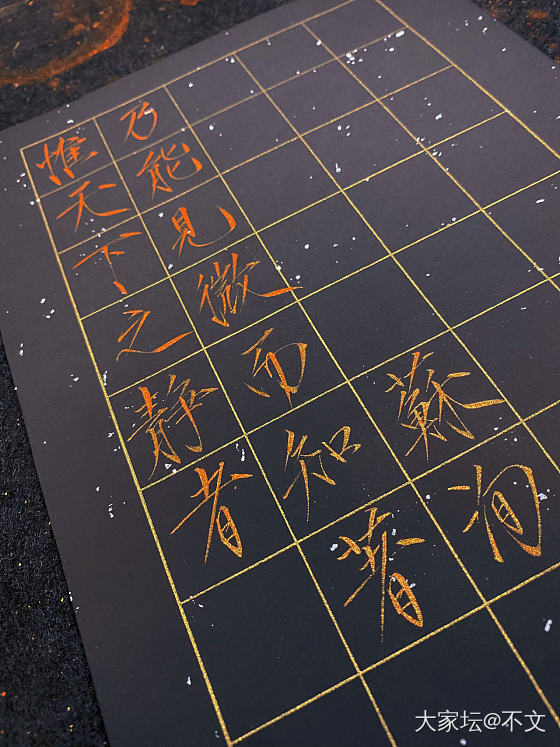 惟天下之静者
乃能見微而知著
蘇洵
大家坛@不文